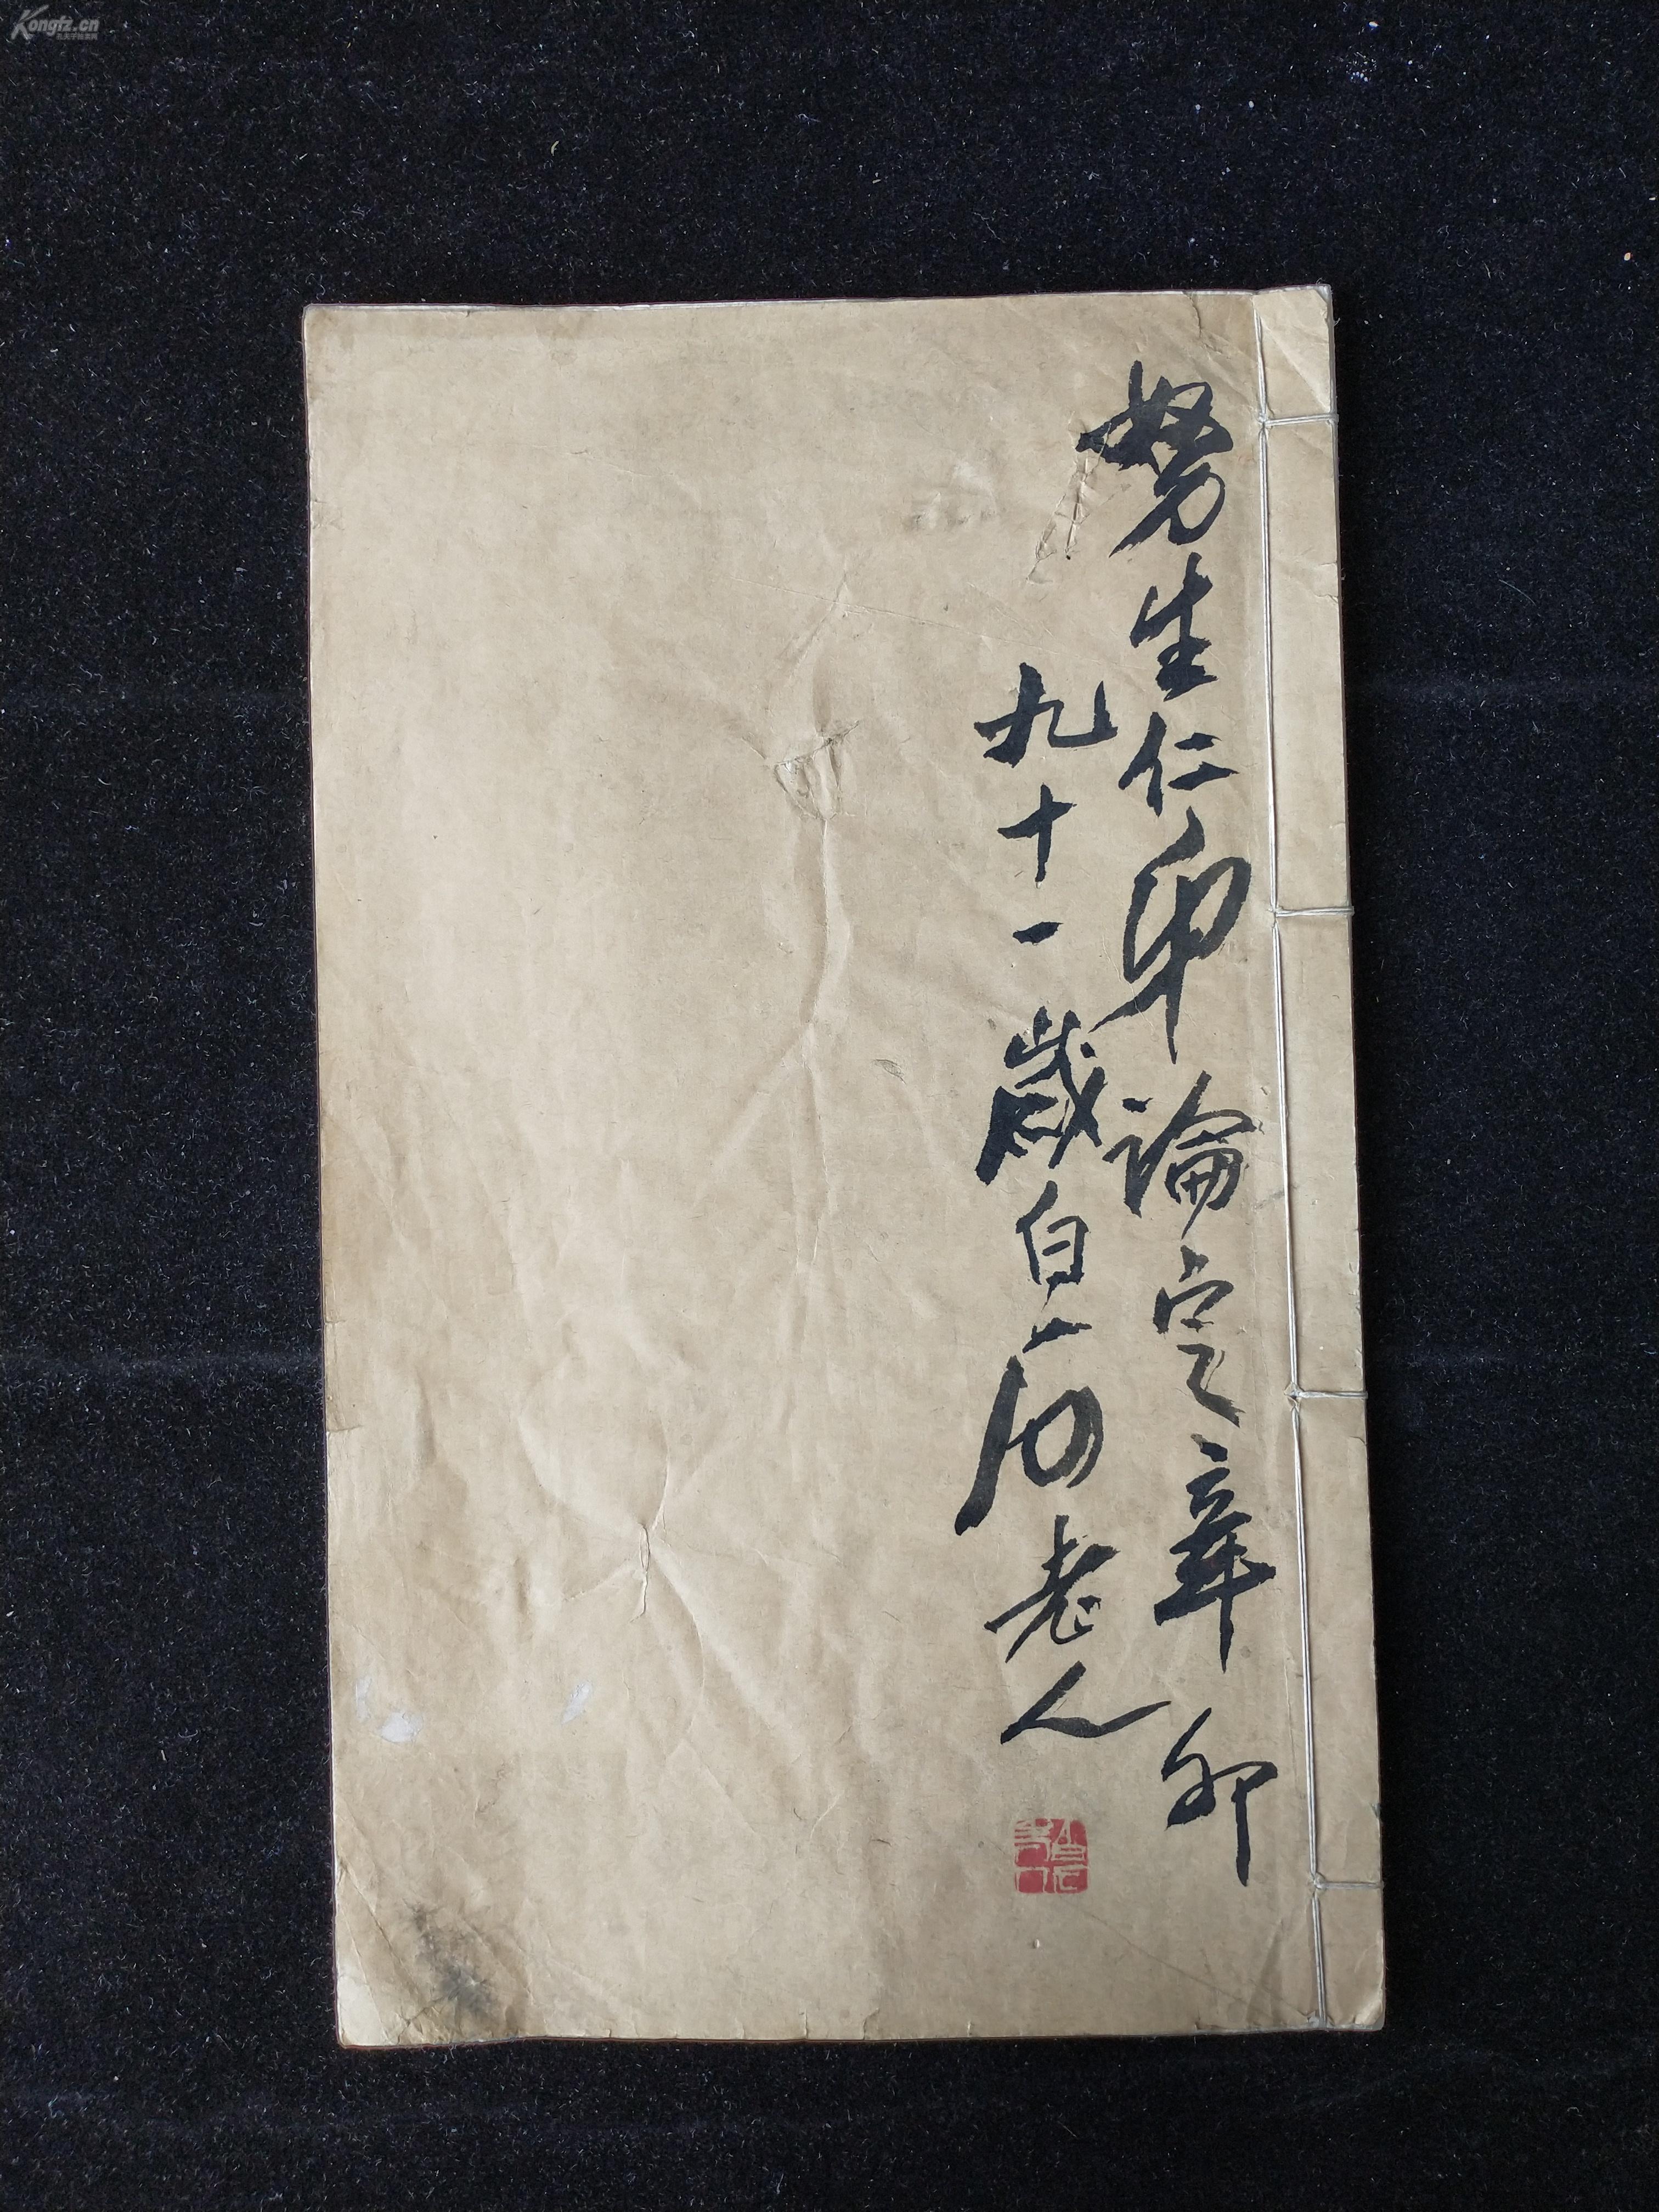 Kongfz.cn
努生仁弟論定辛卯
九十一歲白石老人